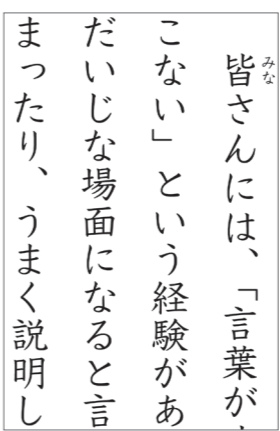 皆さんには、「言葉が
こない」という経験があ
だいじな場面になると言
まったり、うまく説明し